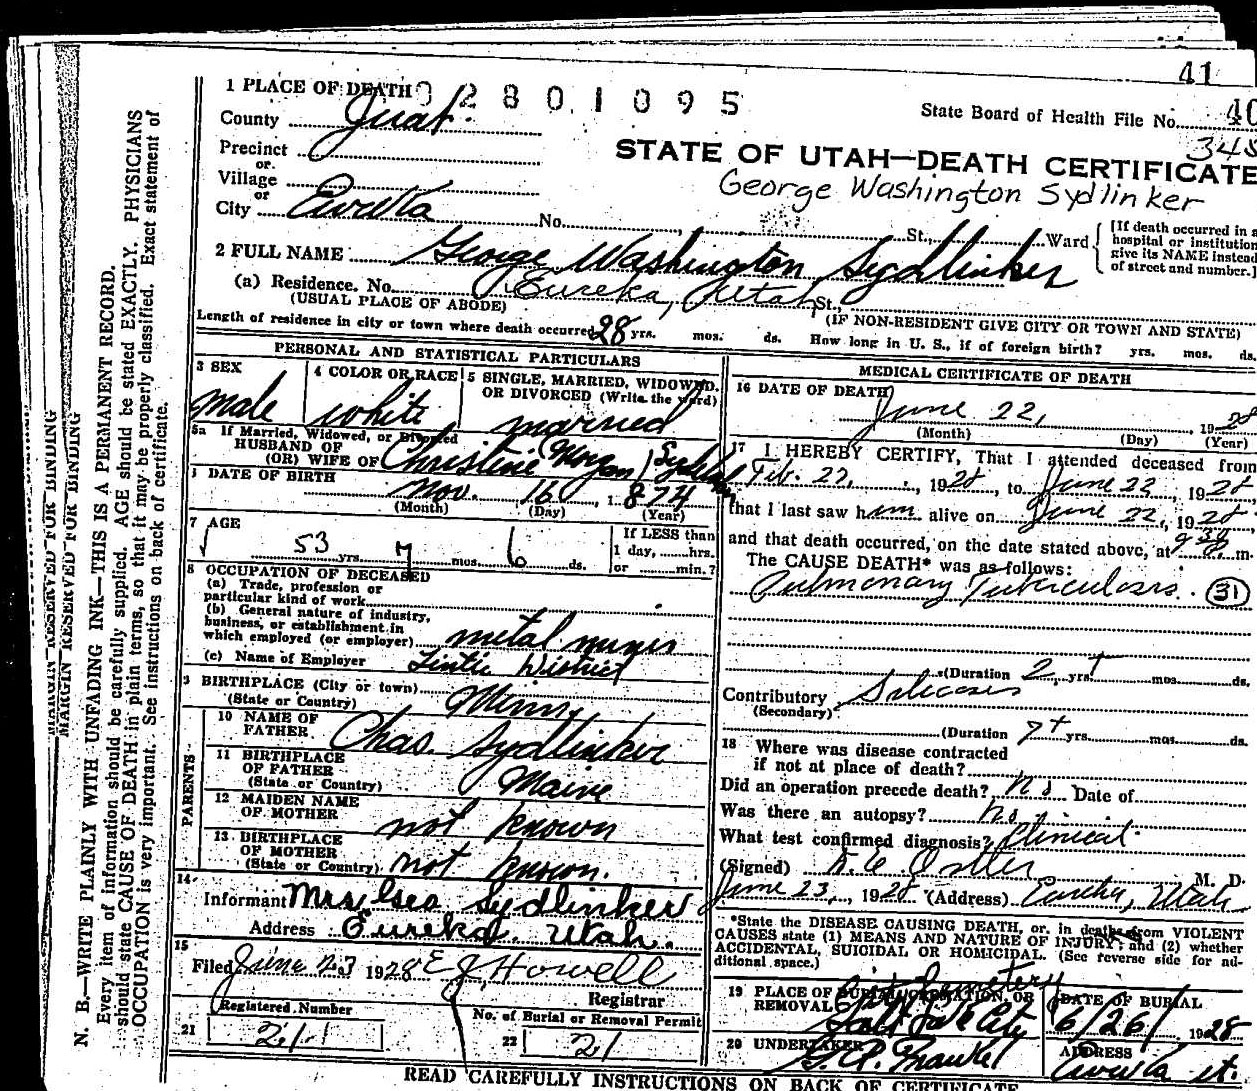 41
1 PLACE OF DEATH 02801095
State Board of Health File No. 40
County Juab.
345
Precinct
or
STATE OF UTAH—DEATH CERTIFICATE
Village
George Washington Sydlinker
or
City Eureka No. St. Ward
[If death occurred in a
hospital or institution
give its NAME instead
of street and number.]
2 FULL NAME George Washington Sydlinker
(a) Residence. No. Eureka, Utah St.,
(USUAL PLACE OF ABODE) (IF NON-RESIDENT GIVE CITY OR TOWN AND STATE)
Length of residence in city or town where death occurred 28 yrs. mos. ds. How long in U. S., if of foreign birth? yrs. mos. ds.
PERSONAL AND STATISTICAL PARTICULARS
3 SEX
male
4 COLOR OR RACE
white
5 SINGLE, MARRIED, WIDOWED.
OR DIVORCED (Write the word)
married
5a If Married, Widowed, or Divorced
HUSBAND OF
(OR) WIFE OF Christine Morgan Sydlinker
DATE OF BIRTH
Nov. 16, 1874
(Month) (Day) (Year)
7 AGE
53 yrs. 7 mos. 6 ds.
If LESS than
1 day, hrs.
or min.?
8 OCCUPATION OF DECEASED
(a) Trade, profession or
particular kind of work
(b) General nature of industry,
business, or establishment in
which employed (or employer) metal mines
(c) Name of Employer Tintic District
9 BIRTHPLACE (City or town)
(State or Country) Minn.
PARENTS
10 NAME OF
FATHER Chas. Sydlinker
11 BIRTHPLACE
OF FATHER
(State or Country) Maine
12 MAIDEN NAME
OF MOTHER not known
13 BIRTHPLACE
OF MOTHER
(State or Country) not known.
14
Informant Mrs Geo Sydlinker
Address Eureka. Utah.
15
Filed June 23 1928 E J Howell
Registrar
Registered Number
21 21
No. of Burial or Removal Permit
22 21
MEDICAL CERTIFICATE OF DEATH
16 DATE OF DEATH
June 22, 1928
(Month) (Day) (Year)
17 I HEREBY CERTIFY, That I attended deceased from
Feb. 22, 1928, to June 22, 1928
that I last saw him alive on June 22, 1928
and that death occurred, on the date stated above, at 9 m.
The CAUSE DEATH* was as follows:
Pulmonary Tuberculosis. (31)
(Duration 2 yrs.+ mos. ds.
Contributory
(Secondary)
(Duration 7+ yrs. mos. ds.
18 Where was disease contracted
if not at place of death?
Did an operation precede death? No Date of
Was there an autopsy? No
What test confirmed diagnosis? Clinical
(Signed) M. D.
June 23, 1928 (Address) Eureka, Utah
*State the DISEASE CAUSING DEATH, or, in deaths from VIOLENT
CAUSES state (1) MEANS AND NATURE OF INJURY; and (2) whether
ACCIDENTAL, SUICIDAL OR HOMICIDAL. (See reverse side for ad-
ditional space.)
19 PLACE OF BURIAL, CREMATION, OR
REMOVAL City Cemetery
Salt Lake City
DATE OF BURIAL
6/26/ 1928
20 UNDERTAKER
ADDRESS
Eureka ut.
READ CAREFULLY INSTRUCTIONS ON BACK OF CERTIFICATE
MARGIN RESERVED FOR BINDING
MARGIN RESERVED FOR BINDING
N. B.—WRITE PLAINLY WITH UNFADING INK—THIS IS A PERMANENT RECORD.
Every item of information should be carefully supplied. AGE should be stated EXACTLY. PHYSICIANS
should state CAUSE OF DEATH in plain terms, so that it may be properly classified. Exact statement of
OCCUPATION is very important. See instructions on back of certificate.